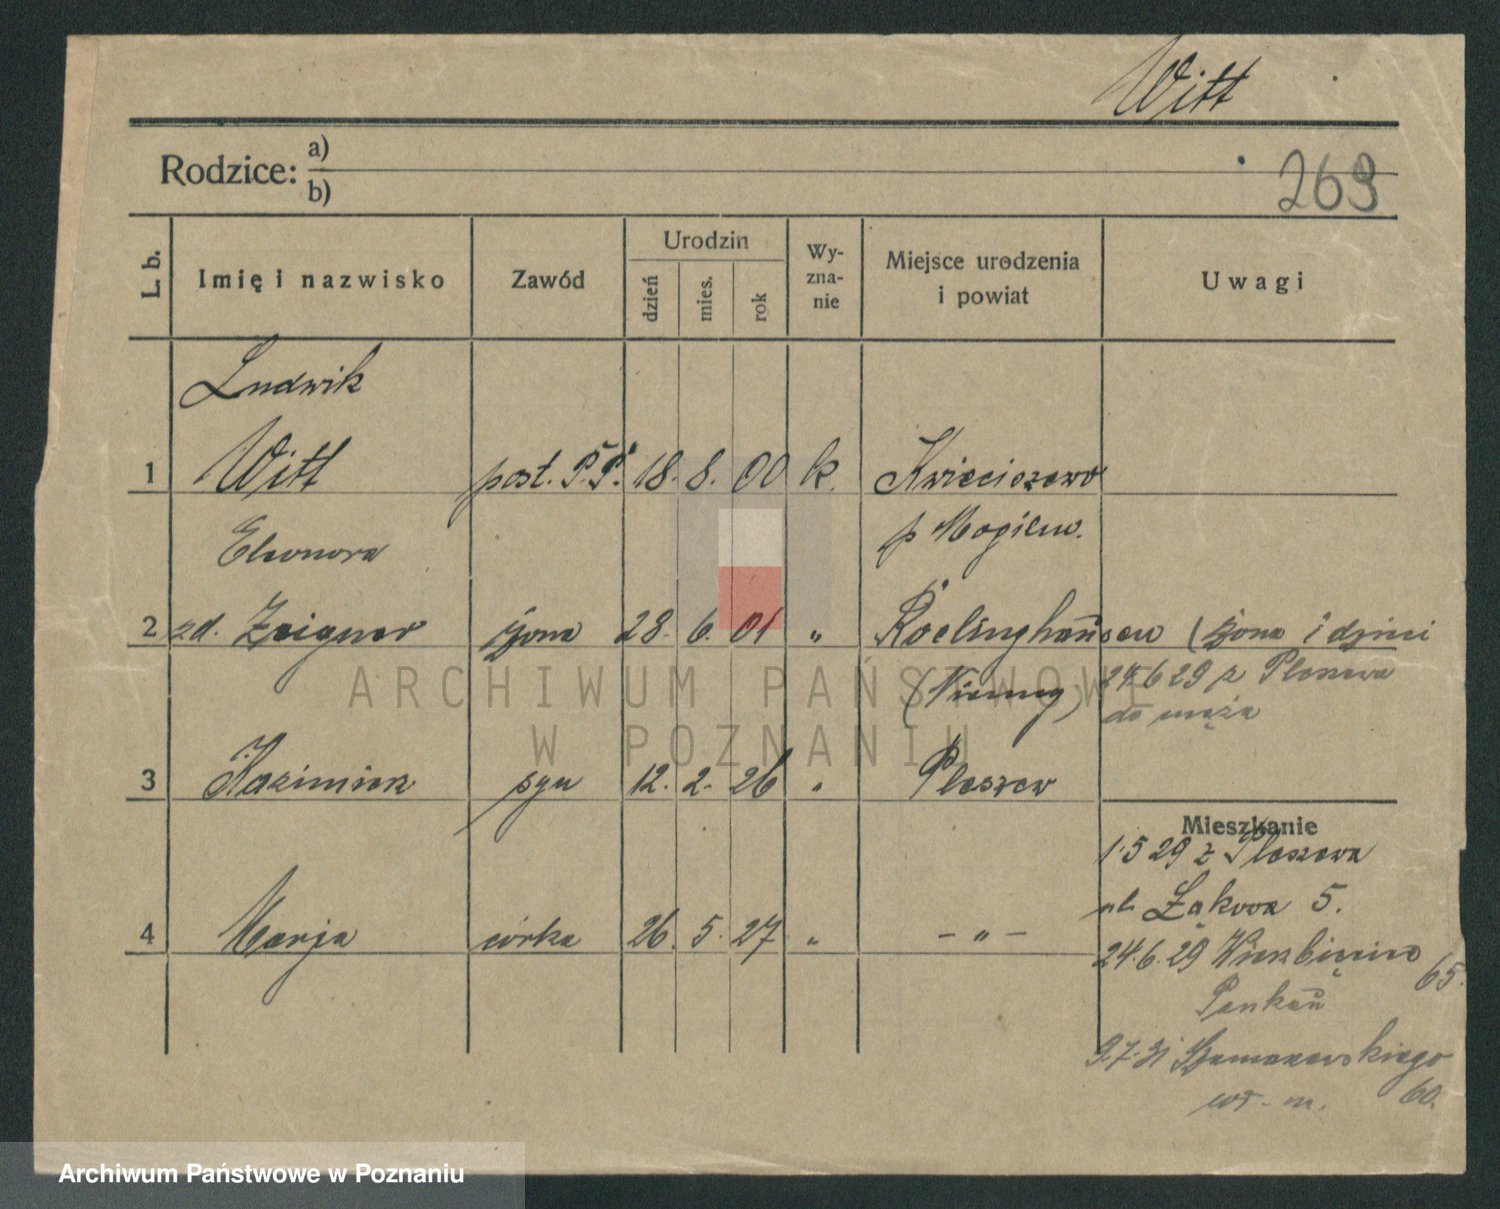 Witt
Rodzice: a)
b)
269
L. b.
Imię i nazwisko
Zawód
Urodzin
dzień
mies.
rok
Wy-
zna-
nie
Miejsce urodzenia
i powiat
Uwagi
Ludwik
1 Witt post. P.P. 18. 8. 00 k. Kwieciszewo
Eleonora p Mogilno.
2 zd. Zeigner żona 28. 6. 01 " Roelinghausen (żona i dzieci
(Niemcy) 24.6 29 z Pleszewa
do męża
3 Kazimierz syn 12. 2. 26 " Pleszew
Mieszkanie
1.5 29 z Pleszewa
ul. Łąkowa 5.
4 Marja córka 26. 5. 27 " - " -
24.6.29 Wierzbięcice 65.
9.7.31 Szamarzewskiego
wł. m. 60.
ARCHIWUM PAŃSTWOWE
W POZNANIU
Archiwum Państwowe w Poznaniu